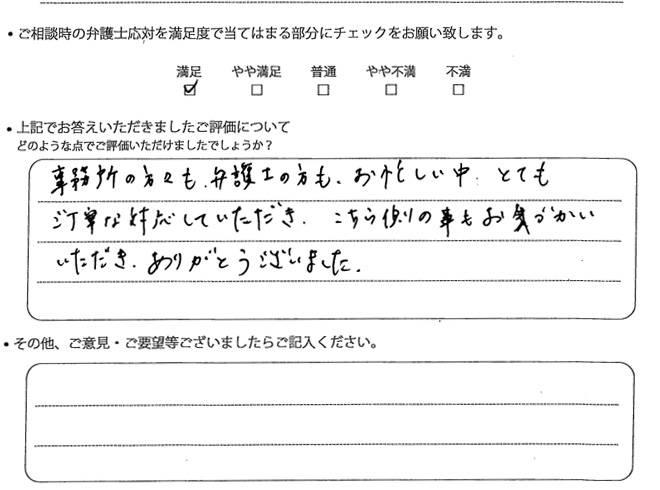 ・ご相談時の弁護士応対を満足度で当てはまる部分にチェックをお願い致します。
満足 やや満足 普通 やや不満 不満
☑ □ □ □ □
・上記でお答えいただきましたご評価について
どのような点でご評価いただけましたでしょうか？
事務所の方々も、弁護士の方も、お忙しい中、とても
ご丁寧な対応していただき、こちら側の事もお気づかい
いただき、ありがとうございました。
・その他、ご意見・ご要望等ございましたらご記入ください。